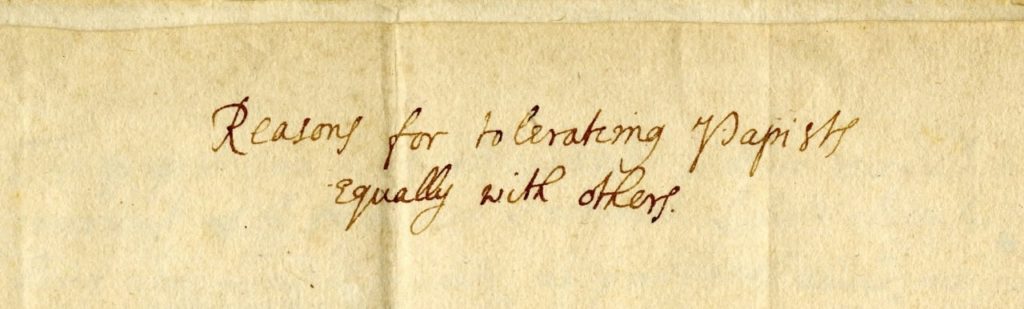 Reasons for tolerateing Papists
Equally with others.